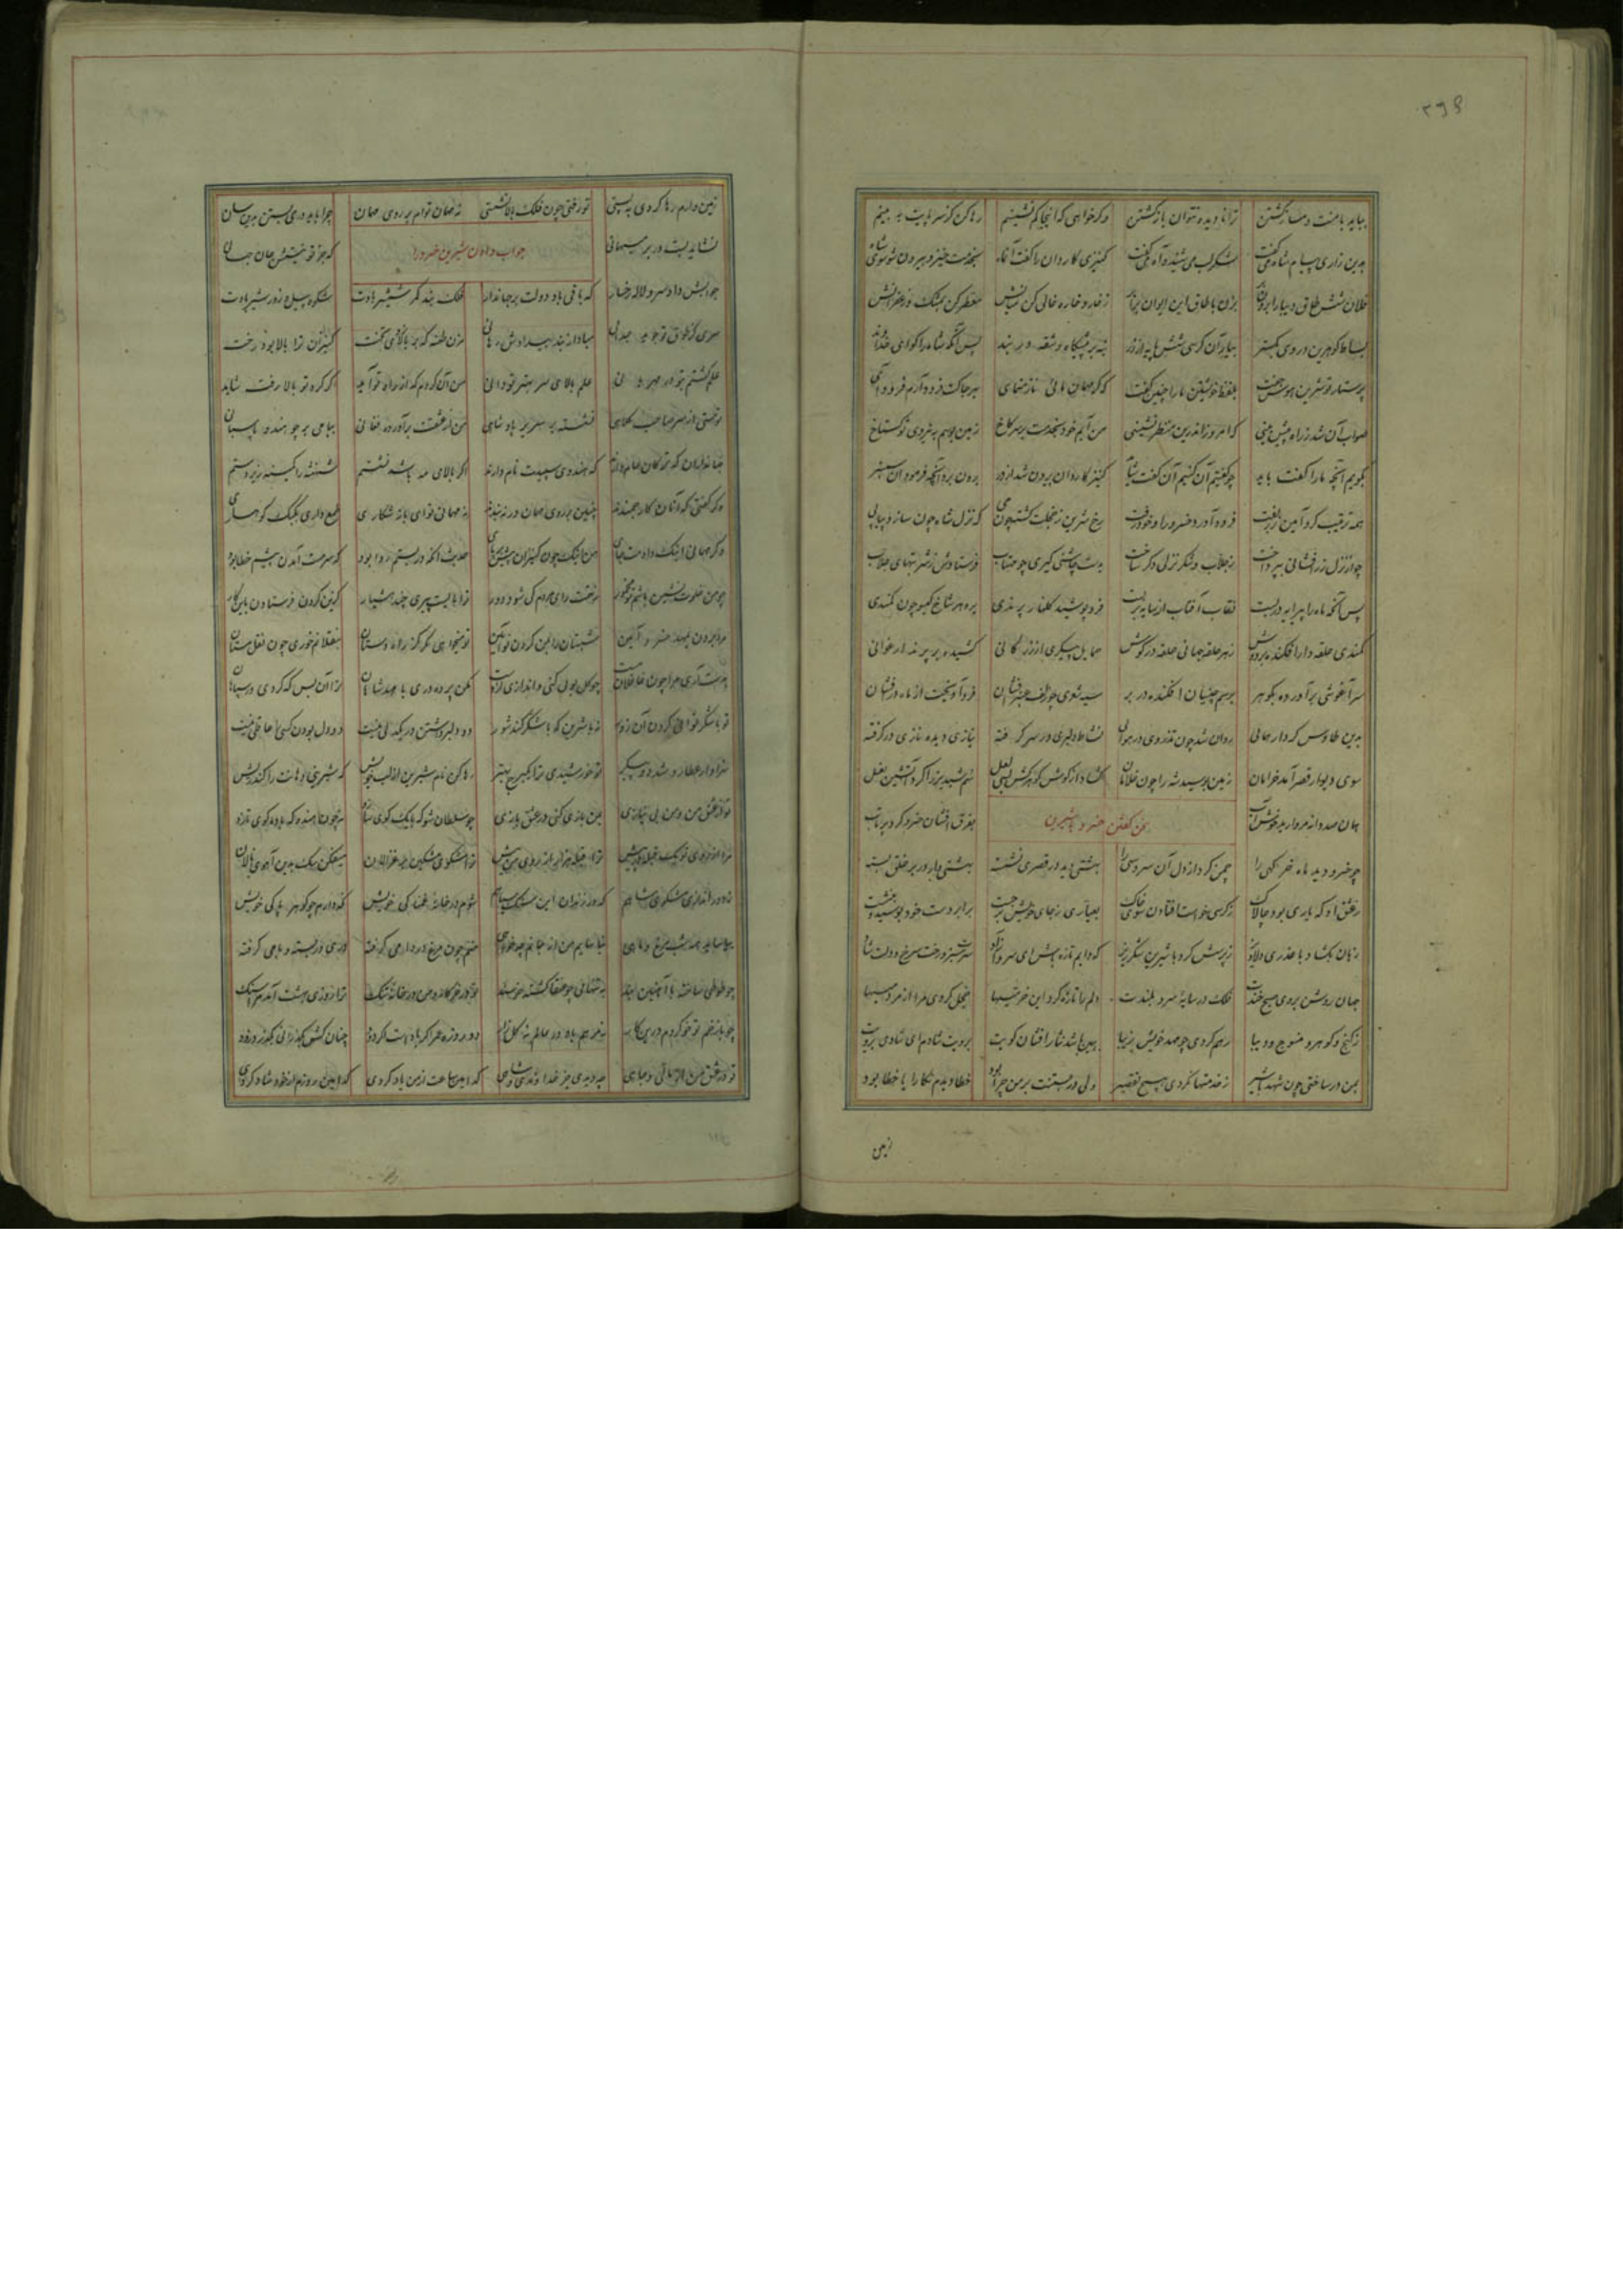 ۲۹۶
بباید با منت دمساز گشتن ترا نادیده نتوان بازگشتن وگر خواهی که اینجا کم نشینم رها کن کز سر پایت ببینم
بدین زاری پیام شاه می گفت شکر لب می شنید و آه می گفت کنیزی کاردان را گفت آن ماه بخدمت خیز و بیرون شو سوی شاه
فلان شش طاق دیبا را برون بر بزن با طاق این ایوان برابر ز خار و خاره خالی کن میانش معطر کن بمشک و زعفرانش
بساط گوهرین در وی بگستر بیار آن کرسی شش پایه از زر بنه در پیشگاه و شقه در بند پس آنگه شاه را گو ای خداوند
پرستار تو شیرین هوس جفت بلفظ خویشتن ما را چنین گفت که گر مهمان مائی ناز منمای بهر جا کت فرود آرم فرود آی
صواب آن شد ز راه پیش بینی که امروز اندرین منظر نشینی من آیم خود بخدمت بر سر کاخ زمین بوسم به نیروی تو گستاخ
بگویم آنچه ما را گفت باید چو گفتیم آن کنیم آن گفت شاید کنیز کاردان بیرون شد از در برون برد آنچه فرمود آن سمنبر
همه ترتیب کرد آیین زربفت فرود آورد خسرو را و خود رفت رخ شیرین ز خجلت گشته چون می که نزل شاه چون سازد پیاپی
چو از نزل زرافشانی بپرداخت ز جلاب و شکر نزلی دگر ساخت بدست چاشنی گیری چو مهتاب فرستادش ز شربتهای جلاب
پس آنگه ماه را پیرایه بر بست نقاب آفتاب از سایه بر بست فرو پوشید گلنار پرندی برو هر شاخ گیسو چون کمندی
کمندی حلقه وار افکنده بر دوش ز هر حلقه جهانی حلقه در گوش حمایل پیکری از زر کانی کشیده بر پرند ارغوانی
سر آغوشی بر آورده بگوهر برسم چینیان افکنده در بر سیه شعری چو زلف عنبرافشان فرود آویخت از ماه درفشان
بدین طاوس کرداری همائی روان شد چون تذروی در هوائی نشاط دلبری در سر گرفته نیازی دیده نازی در گرفته
سوی دیوار قصر آمد خرامان زمین بوسید شه را چون غلامان گشاد از گوش گوهرکش بسی لعل سم شبدیز را کرد آتشین نعل
همان صد دانه مروارید خوش آب سخن گفتن خسرو با شیرین بفرق افشان خسرو کرد پرتاب
چو خسرو دید ماه خرگهی را چمن کرد از دل آن سرو سهی را بهشتی دید در قصری نشسته بهشتی وار در بر خلق بسته
ز عشق او که یاری بود چالاک ز کرسی خواست افتادن سوی خاک بعیاری ز جای خویش برجست برابر دست خود بوسید و بنشست
زبان بگشاد با عذری دلاویز ز پرسش کرد با شیرین شکرریز که دایم تازه باش ای سرو آزاد سرت سبز و رخت سرخ و دلت شاد
جهان روشن بروی صبح خندت فلک در سایه سرو بلندت دلم را تازه کرد این خرمیها خجل کردی مرا از مردمیها
ز گنج و گوهر و منسوج و دیبا رهم کردی چو مهد خویش زیبا همین باشد نثار افشان کویت برویت شادم ای شادی برویت
بمن در ساختی چون شهد با شیر ز خدمتها نکردی هیچ تقصیر ولی در بستنت بر من چرا بود خطا دیدم نگارا یا خطا بود
زمین
زمین وارم رها کردی به پستی تو رفتی چون فلک بالا نشستی نه مهمان توام بر روی مهمان چرا باید دری بستن بدین سان
نشاید بست در بر میهمانی جواب دادن شیرین خسرو را که جز تو نیستش جان جهانی
جوابش داد سرو لاله رخسار که باقی باد دولت بر جهاندار فلک بند کمر شمشیر بادت شکوه پیل و زور شیر بادت
سری کز طوق تو جوید جدائی مباد از بند بیدادش رهائی مزن طعنه که بر بالا زدی تخت کنیزان ترا بالا بود رخت
علم گشتم بتو در مهربانی علم بالای سر بهتر تو دانی من آن گردم که از راه تو آید اگر گرد تو بالا رفت شاید
تو هستی از سر صاحب کلاهی نشسته بر سریر پادشاهی من از عشقت برآورده فغانی ببامی بر چو هندو پاسبانی
جهانداران که ترکان عام دارند که هندوی سپیدت نام دارند اگر بالای مه باشد نشستم شهنشه را کمینه زیر دستم
دگر گفتی که آنان کارجمندند چنین بر روی مهمان در نبندند نه مهمانی توای باز شکاری طمع داری بکبک کوهساری
وگر مهمانی اینک دادمت جای من اینک چون کنیزان پیش بر پای حدیث آنکه در بستم روا بود که سرمست آمدن پیشم خطا بود
چو من خلوت نشین باشم تو مخمور ز تهمت رای مردم کی شود دور ترا بایست پیری چند هشیار گزین کردن فرستادن باین کار
مرا بردن بمهد خسرو آیین شبستان را بمن کردن نوآیین تو میخواهی مگر کز راه دستان بنقلانم خوری چون نقل مستان
بدست آری مرا چون غافل مست چو گل بوئی کنی و اندازی از دست مکن پرده دری با مهد شاهان ترا آن بس که کردی در سپاهان
تو با شکر توانی کردن آن زور نه با شیرین که با شکر کند شور دو دلبر داشتن در یکدلی نیست دو دل بودن کسی را عاقلی نیست
سزاوار عطارد شد دو پیکر تو خورشیدی ترا یک برج بهتر رها کن نام شیرین از لب خویش که شیرینی دهانت را کند ریش
تو از عشق من و من بی نیازی بمن بازی کنی در عشق بازی چو سلطان شو که با یک گوی سازد نه چون هندو که با ده گوی تازد
مرا از روی تو یک قبله در پیش ترا قبله هزار از روی من بیش ترا مشکوی مشکین پر غزالان میفکن سگ بدین آهوی نالان
ز دور اندازی مشکوی شاهم که در زندان این سنگست پناهم شوم در خانه غمناکی خویش نگه دارم چو گوهر پاکی خویش
بیاساید همه شب مرغ و ماهی نیاسایم من از جانم چه خواهی منم چون مرغ در دامی گرفته دری در بسته و بامی گرفته
چو طوطی ساخته با آهنین بند بتنهائی چو عنقا گشته خرسند تو در خرگاه و من در خانه تنگ ترا روزی بهشت آمد مرا سنگ
چو با زخم تو خو کردم درین کار نه مرهم باد در عالم نه گلزار دو روزه عمر اگر دادست گر دود چنان کش بگذرانی بگذرد زود
تو در عشق من از مالی و جاهی چه دیدی جز خداوندی و شاهی کدامین ساعت از من یاد کردی کدامین روزم از خود شاد کردی